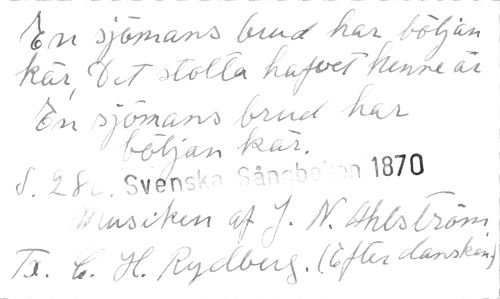 En sjömans brud har böljan
kär, Det stolta hafvet henne är
En sjömans brud har
böljan kär.
S. 28 Svenska Sångboken 1870
Musiken af J. N. Ahlström
Tx. C. H. Rydberg. (Efter danskan)